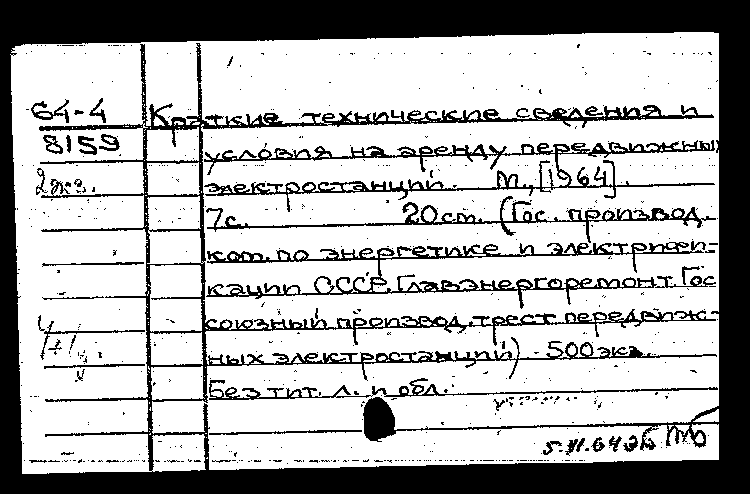 64-4 Краткие технические сведения и
8159 условия на аренду передвижных
2 экз. электростанций. М., [1964].
7 с. 20 см. (Гос. производ.
ком. по энергетике и электрифи-
кации СССР. Главэнергоремонт. Гос
союзный производ. трест передвиж-
ных электростанций) 500 экз.
Без тит. л. и обл.